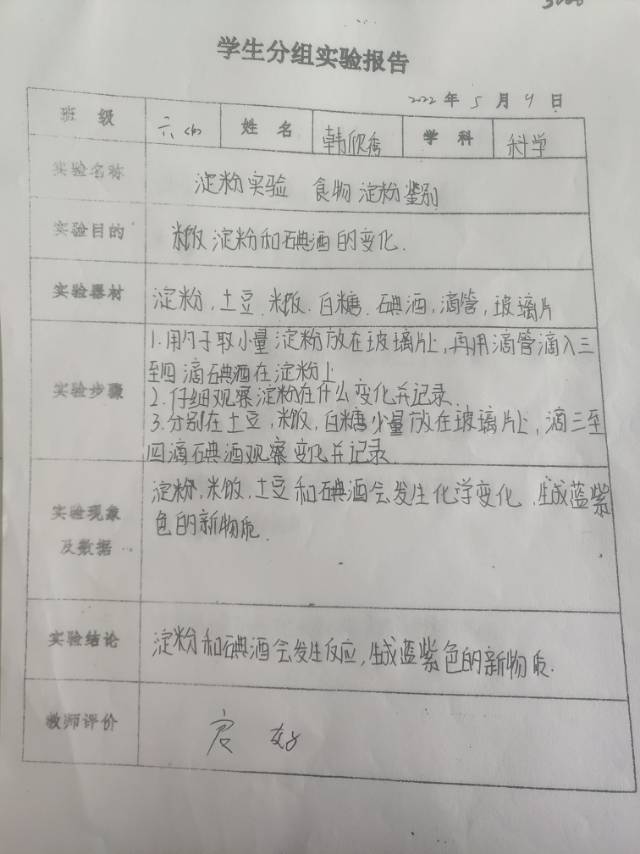 学生分组实验报告
2022 年 5 月 4 日
班 级 六 姓 名 韩欣 学 科 科学
实验名称 淀粉实验 食物淀粉鉴别
实验目的 米饭 淀粉和碘酒的变化.
实验器材 淀粉,土豆.米饭.白糖.碘酒,滴管,玻璃片
实验步骤
1.用勺子取小量淀粉放在玻璃片上,再用滴管滴入三
至四滴碘酒在淀粉上
2.仔细观察淀粉在什么变化并记录.
3.分别在土豆,米饭,白糖少量放在玻璃片上,滴三至
四滴碘酒观察变化并记录.
实验现象
及数据
淀粉,米饭,土豆和碘酒会发生化学变化,生成蓝紫
色的新物质.
实验结论 淀粉和碘酒会发生反应,生成蓝紫色的新物质.
教师评价 良 好